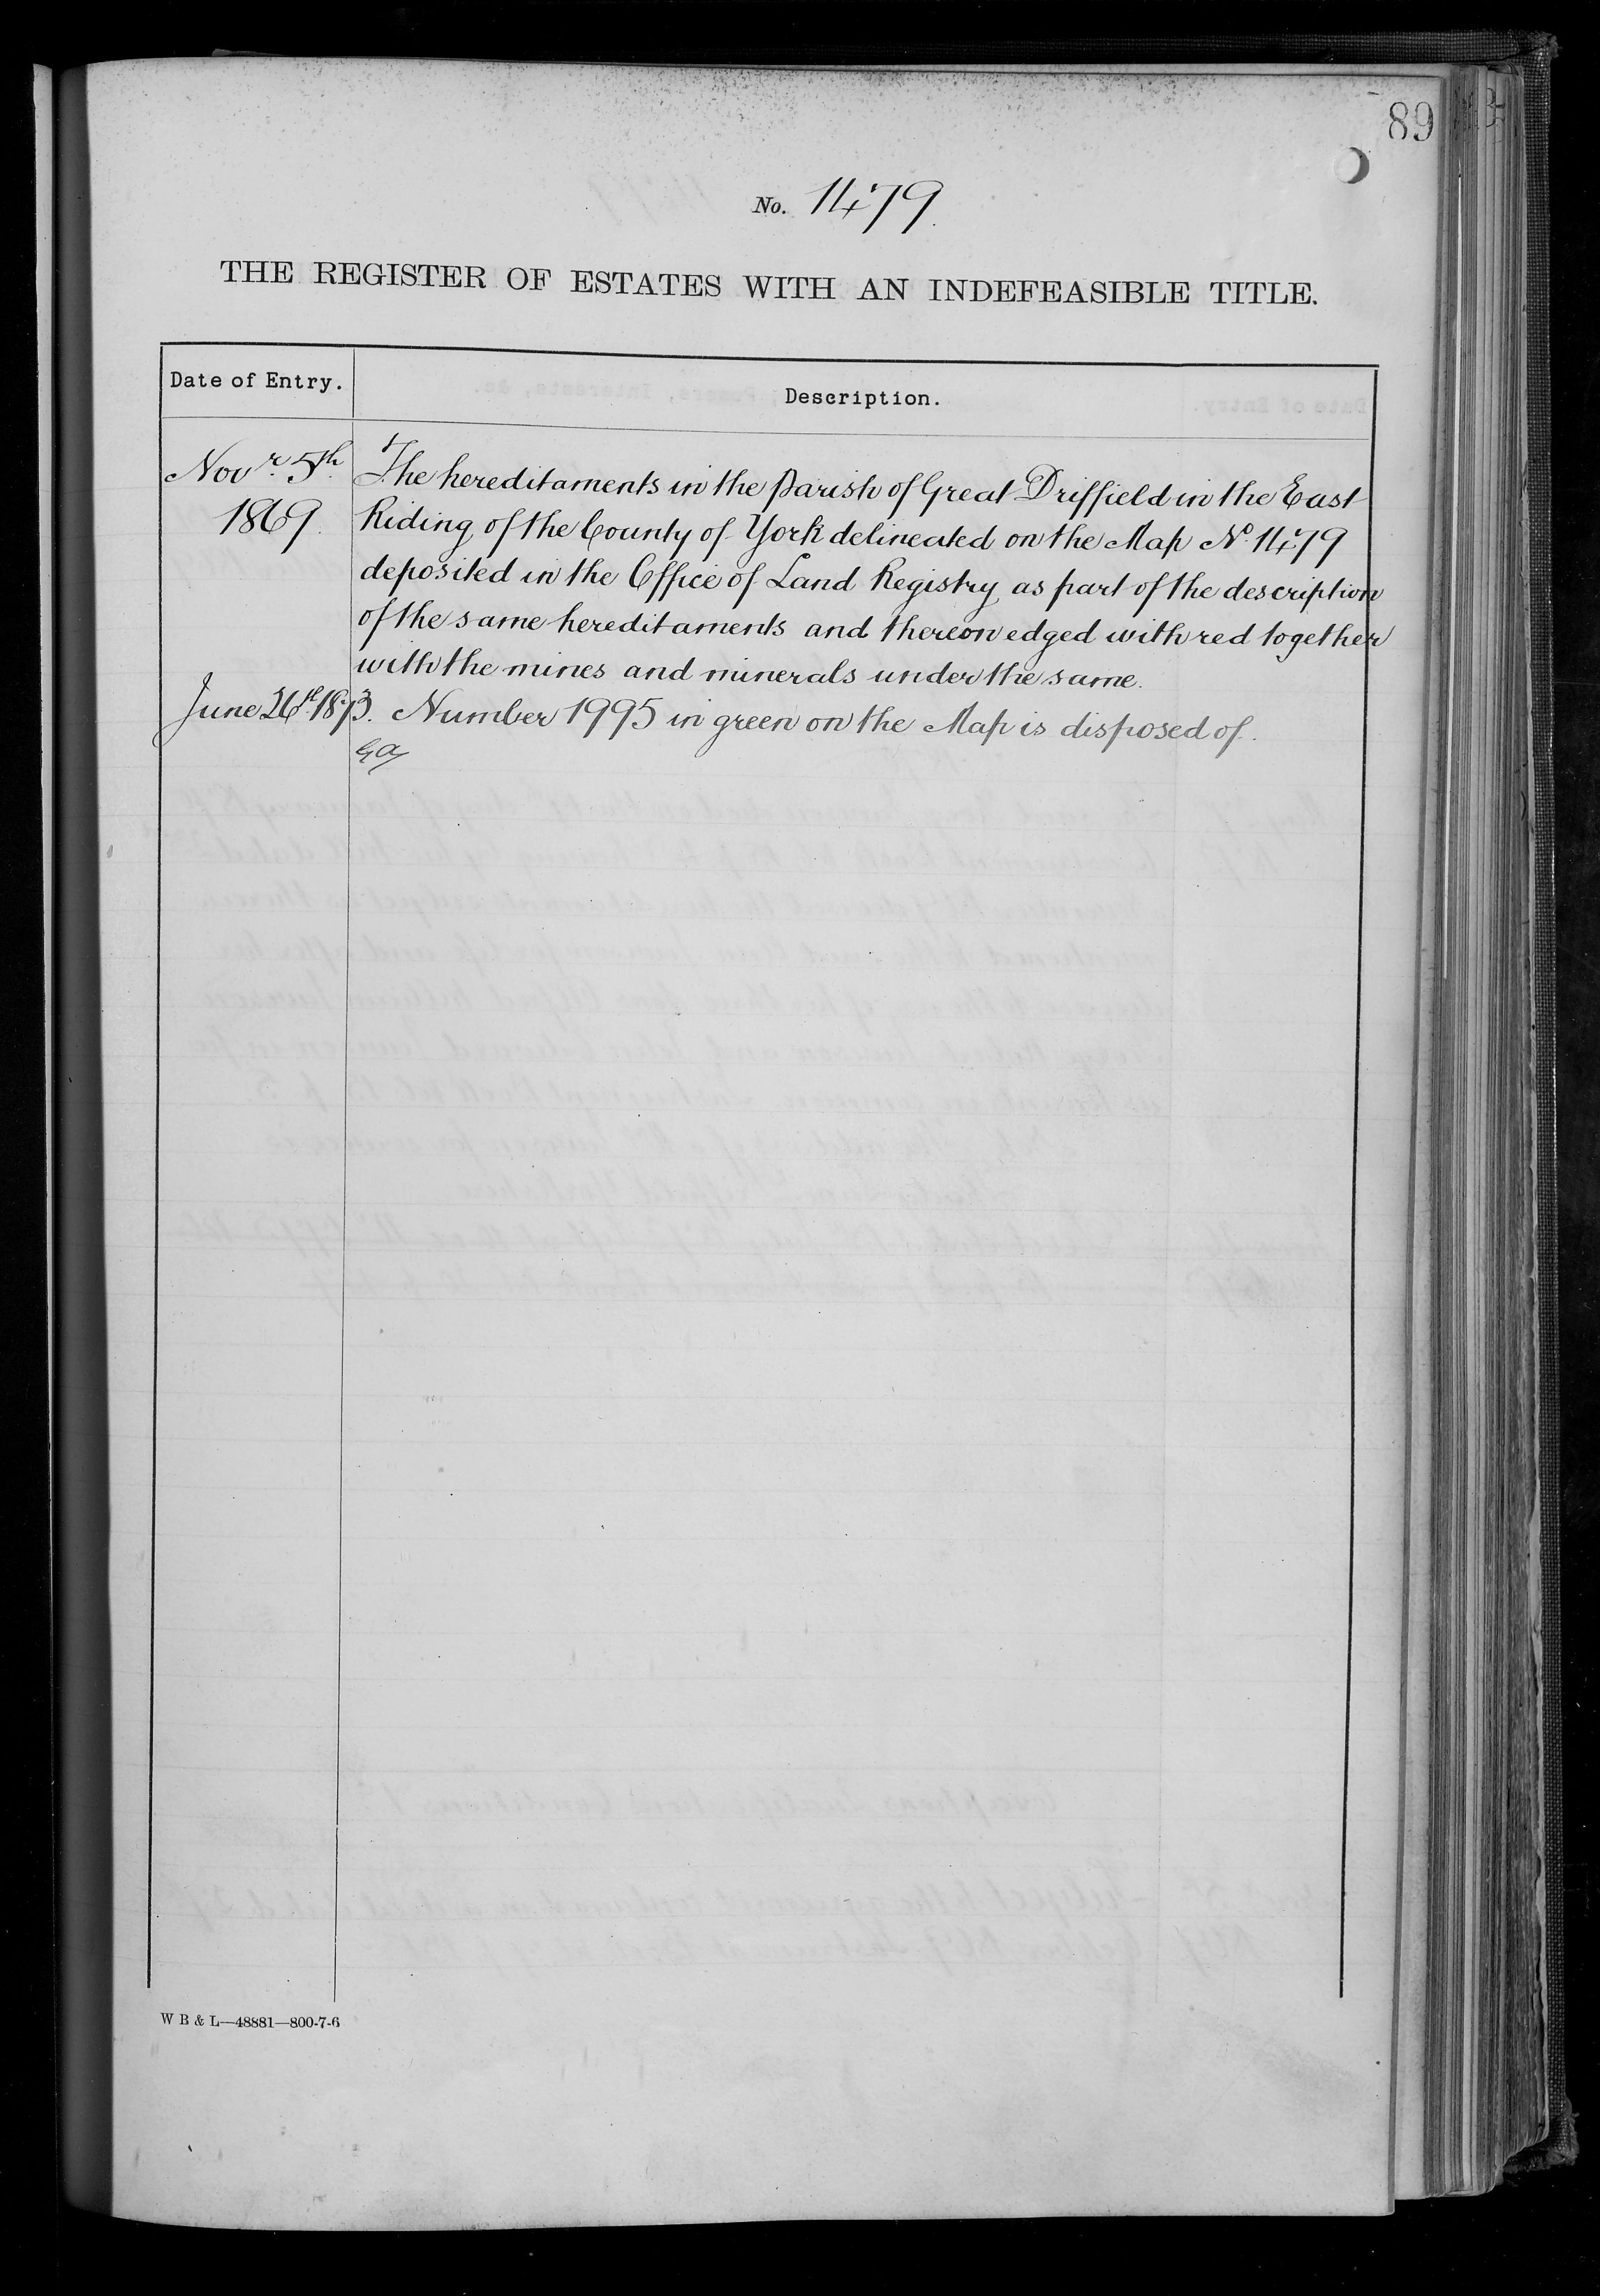 89
No. 1479.
THE REGISTER OF ESTATES WITH AN INDEFEASIBLE TITLE.
Date of Entry.
Description.
Novr. 5th
1869.
The hereditaments in the Parish of Great Driffield in the East
Riding of the County of York delineated on the Map No. 1479
deposited in the Office of Land Registry as part of the description
of the same hereditaments and thereon edged with red together
with the mines and minerals under the same.
June 26th 1873. Number 1995 in green on the Map is disposed of.
W B & L—48881—800-7-6